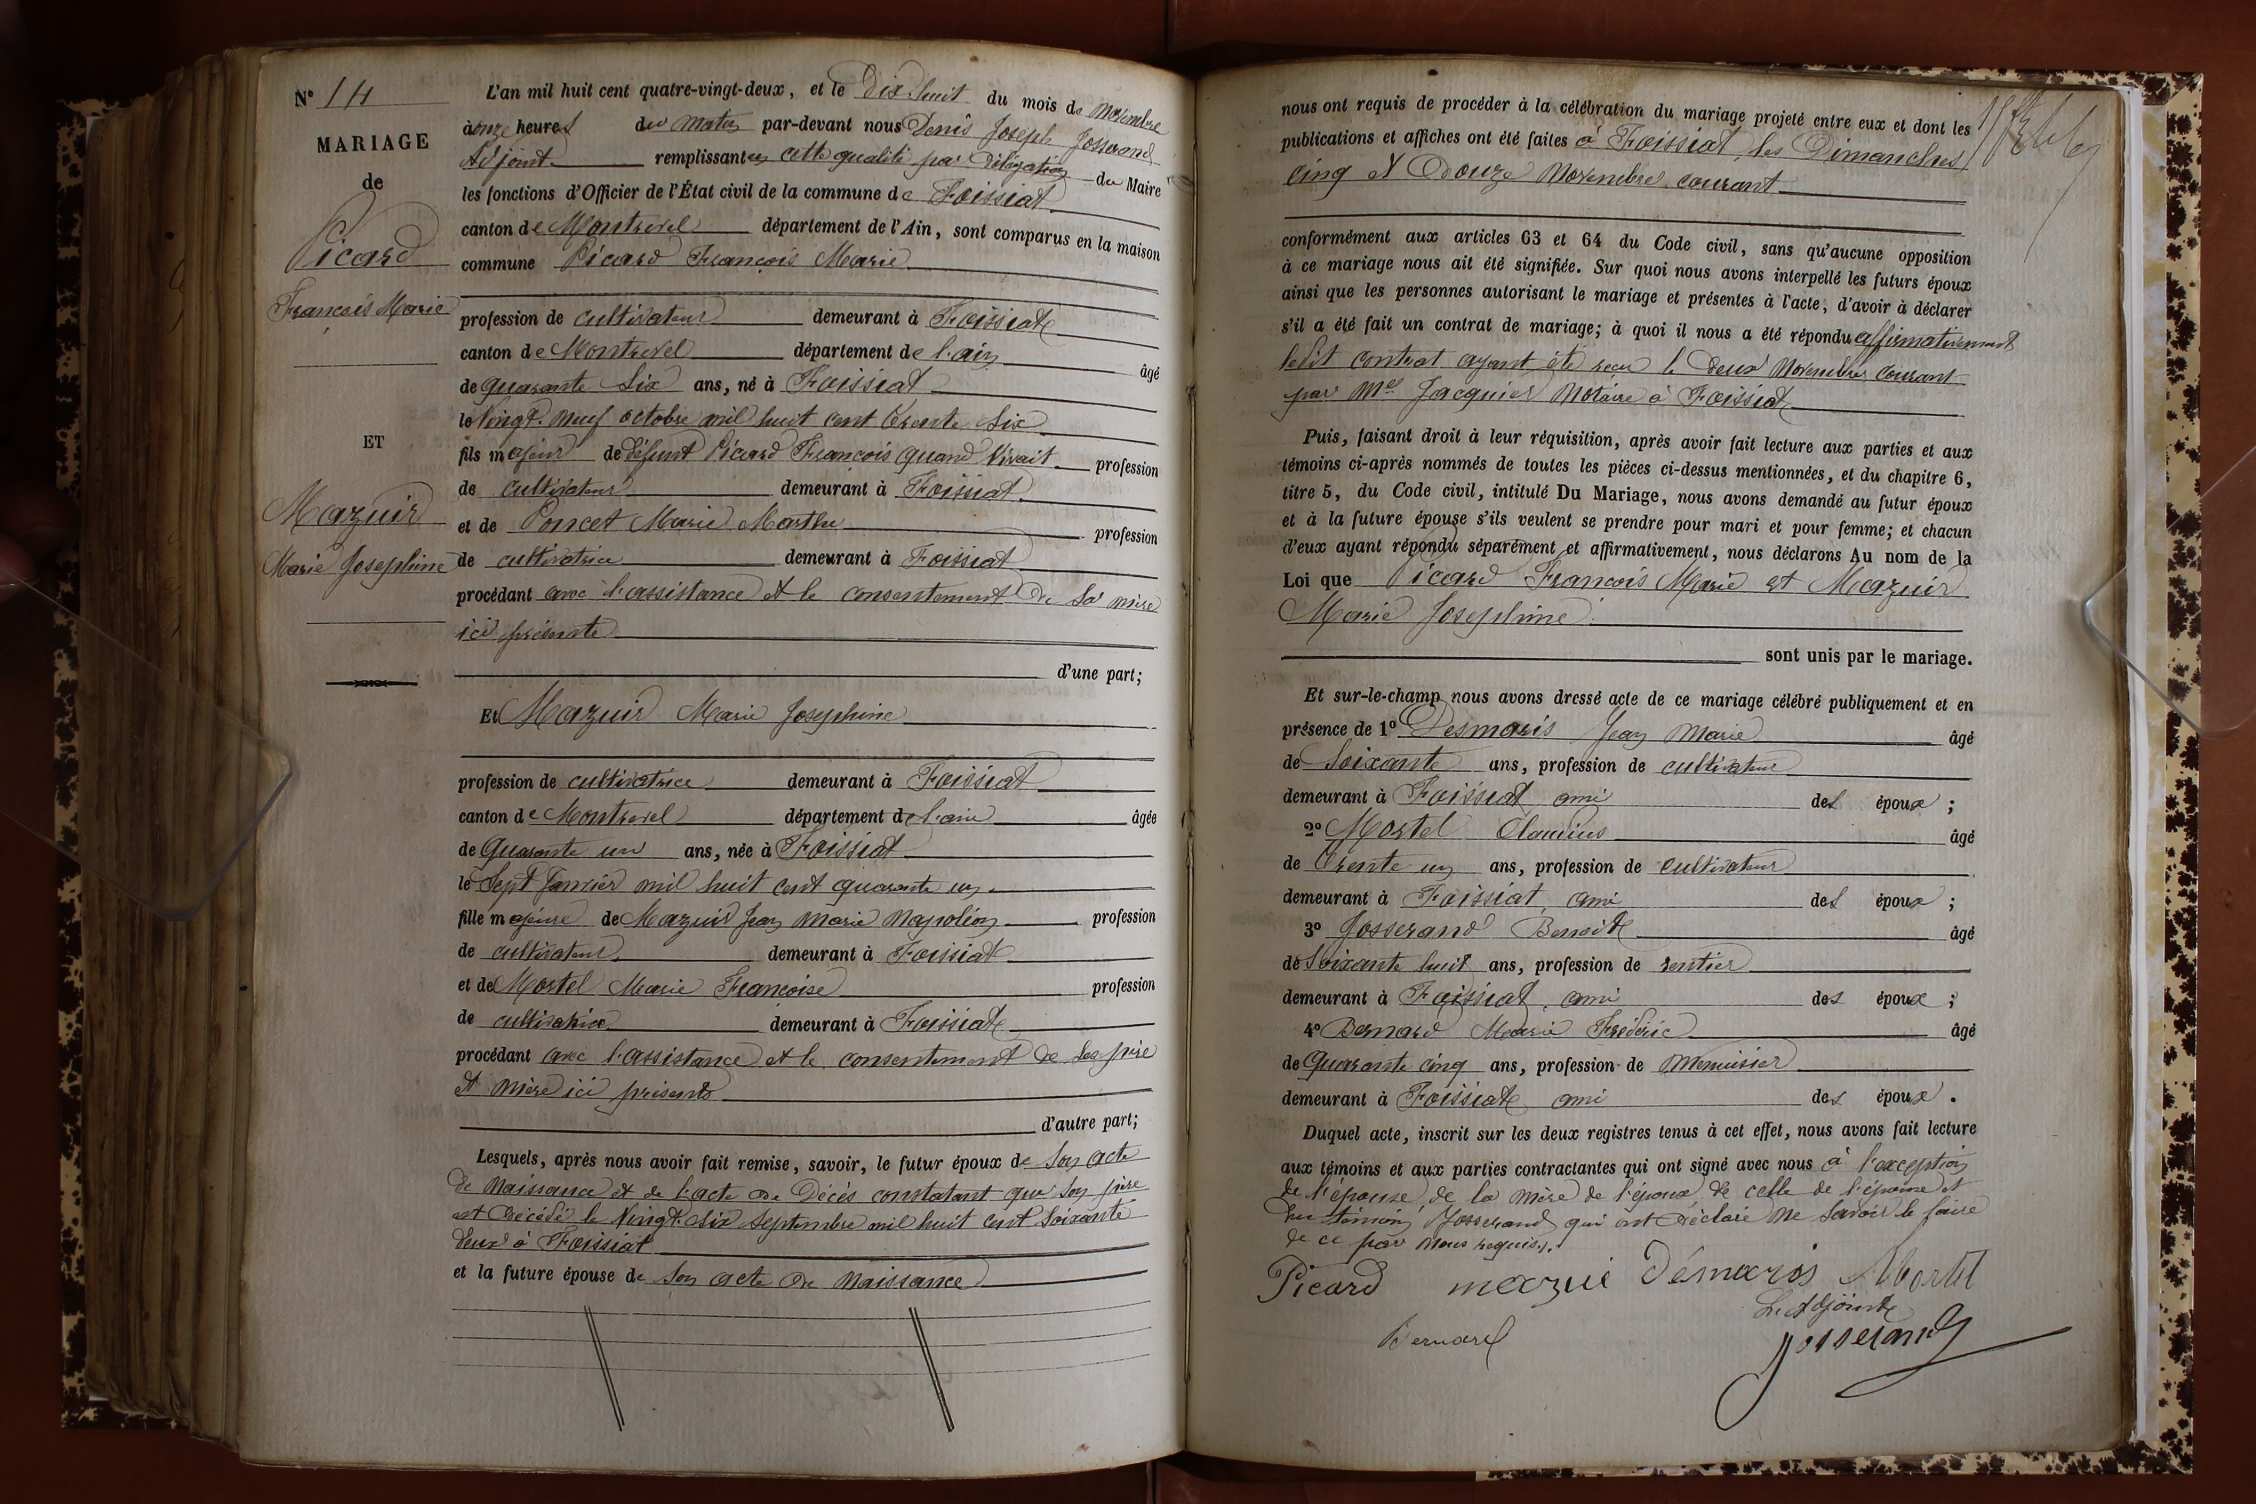 N° 14
MARIAGE
de
Picard
François Marie
ET
Mazuir
Marie Josephine
L'an mil huit cent quatre-vingt-deux, et le Dix huit du mois de Novembre
à onze heures du Matin par-devant nous Denis Joseph Josserand
Adjoint remplissant en cette qualité par Délégation du Maire
les fonctions d'Officier de l'État civil de la commune de Foissiat
canton de Montrevel département de l'Ain, sont comparus en la maison
commune Picard François Marie
profession de cultivateur demeurant à Foissiat
canton de Montrevel département de l'ain âgé
de quarante Six ans, né à Foissiat
le Vingt neuf octobre mil huit cent trente Six
fils majeur de défunt Picard François quand Vivait profession
de cultivateur demeurant à Foissiat
et de Poncet Marie Marthe profession
de cultivatrice demeurant à Foissiat
procédant avec l'assistance et le consentement de Sa mère
ici présente
d'une part;
Et Mazuir Marie Josephine
profession de cultivatrice demeurant à Foissiat
canton de Montrevel département de l'ain âgée
de Quarante un ans, née à Foissiat
le Sept Janvier mil huit cent quarante un
fille majeure de Mazuir Jean Marie Napoléon profession
de cultivateur demeurant à Foissiat
et de Mortel Marie Françoise profession
de cultivatrice demeurant à Foissiat
procédant avec l'assistance et le consentement de Ses père
et mère ici présents
d'autre part;
Lesquels, après nous avoir fait remise, savoir, le futur époux de Son acte
de Naissance et de l'acte de Décès constatant que Son père
est décédé le Vingt Six Septembre mil huit cent Soixante
deux à Foissiat
et la future épouse de Son acte de Naissance
nous ont requis de procéder à la célébration du mariage projeté entre eux et dont les
publications et affiches ont été faites à Foissiat, les Dimanches
cinq et Douze Novembre courant
conformément aux articles 63 et 64 du Code civil, sans qu'aucune opposition
à ce mariage nous ait été signifiée. Sur quoi nous avons interpellé les futurs époux
ainsi que les personnes autorisant le mariage et présentes à l'acte, d'avoir à déclarer
s'il a été fait un contrat de mariage; à quoi il nous a été répondu affirmativement
ledit contrat ayant été reçu le deux Novembre courant
par Me Jacquier Notaire à Foissiat
Puis, faisant droit à leur réquisition, après avoir fait lecture aux parties et aux
témoins ci-après nommés de toutes les pièces ci-dessus mentionnées, et du chapitre 6,
titre 5, du Code civil, intitulé Du Mariage, nous avons demandé au futur époux
et à la future épouse s'ils veulent se prendre pour mari et pour femme; et chacun
d'eux ayant répondu séparément et affirmativement, nous déclarons Au nom de la
Loi que Picard François Marie et Mazuir
Marie Josephine
sont unis par le mariage.
Et sur-le-champ nous avons dressé acte de ce mariage célébré publiquement et en
présence de 1° Desmaris Jean Marie âgé
de Soixante ans, profession de cultivateur
demeurant à Foissiat ami des époux ;
2° Mortel Claudius âgé
de trente un ans, profession de cultivateur
demeurant à Foissiat, ami des époux ;
3° Josserand Benoit âgé
de Soixante huit ans, profession de rentier
demeurant à Foissiat, ami des époux ;
4° Bernard Marie Frédéric âgé
de Quarante cinq ans, profession de Menuisier
demeurant à Foissiat ami des époux .
Duquel acte, inscrit sur les deux registres tenus à cet effet, nous avons fait lecture
aux témoins et aux parties contractantes qui ont signé avec nous à l'exception
de l'épouse, de la mère de l'époux, de celle de l'épouse et
du témoin Josserand qui ont déclaré ne Savoir le faire
de ce par Nous requis.
Picard mazuir Démaris Mortel
L'Adjoint
Bernard Josserand